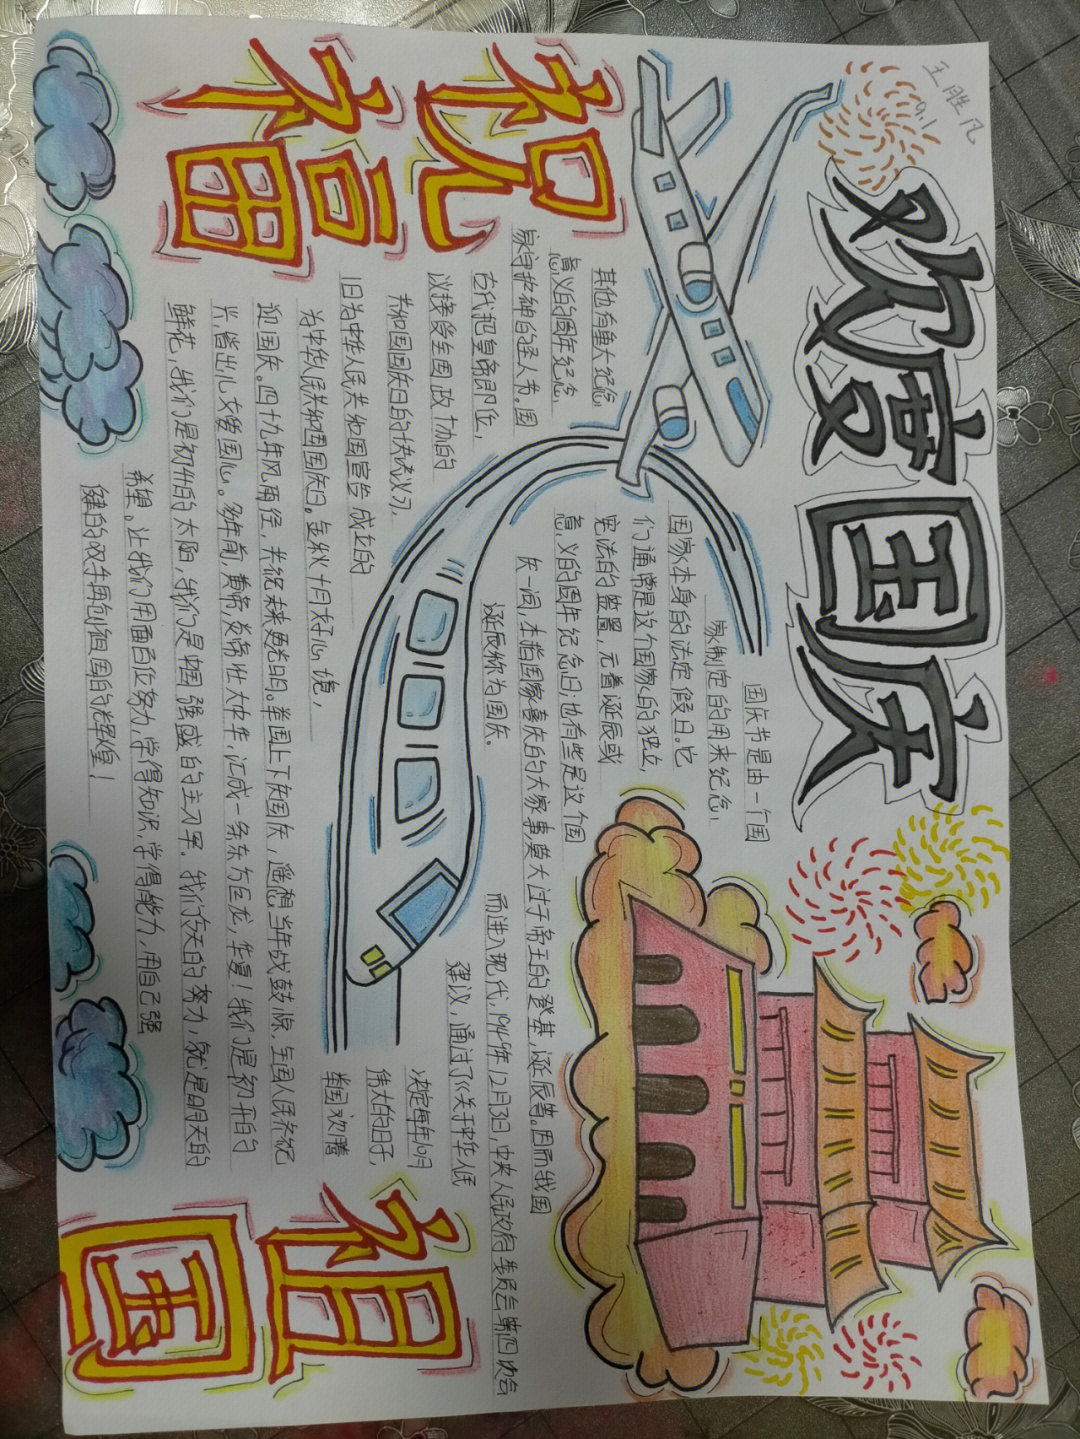 王胜凡
9.1
欢度国庆
国庆节是由一个国
家制定的用来纪念
国家本身的法定假日。它
们通常是这个国家的独立、
宪法的签署、元首诞辰或
其他有重大纪念
意义的周年纪念日;也有些是这个国
意义的周年纪念
家守护神的圣人节。国
庆一词,本指国家喜庆的大家事莫大过于帝王的登基,诞辰等。因而我国
古代把皇帝即位,
诞辰称为国庆。
而进入现代,1949年12月3日,中央人民政府委员会第四次会
议接受全国政协的
建议,通过了《关于中华人民
共和国国庆日的快决议》,
决定每年10月
1日为中华人民共和国宣告成立的
伟大的日子,
为中华人民共和国国庆日。金秋十月好心境,
举国欢腾
迎国庆。四十九年风雨径,共祝未来更光明。举国上下庆国庆,遥想当年战鼓惊,全国人民齐纪
兴,皆出儿女爱国心。多年前,黄帝炎帝壮大中华,汇成一条东方巨龙,华夏!我们是初开的
鲜花,我们是初升的太阳,我们是中国强盛的主人军。我们今天的努力,就是明天的
希望。让我们用百倍努力,学得知识,学得能力,用自己强
健的双手再创祖国的辉煌!
祝福
祖国